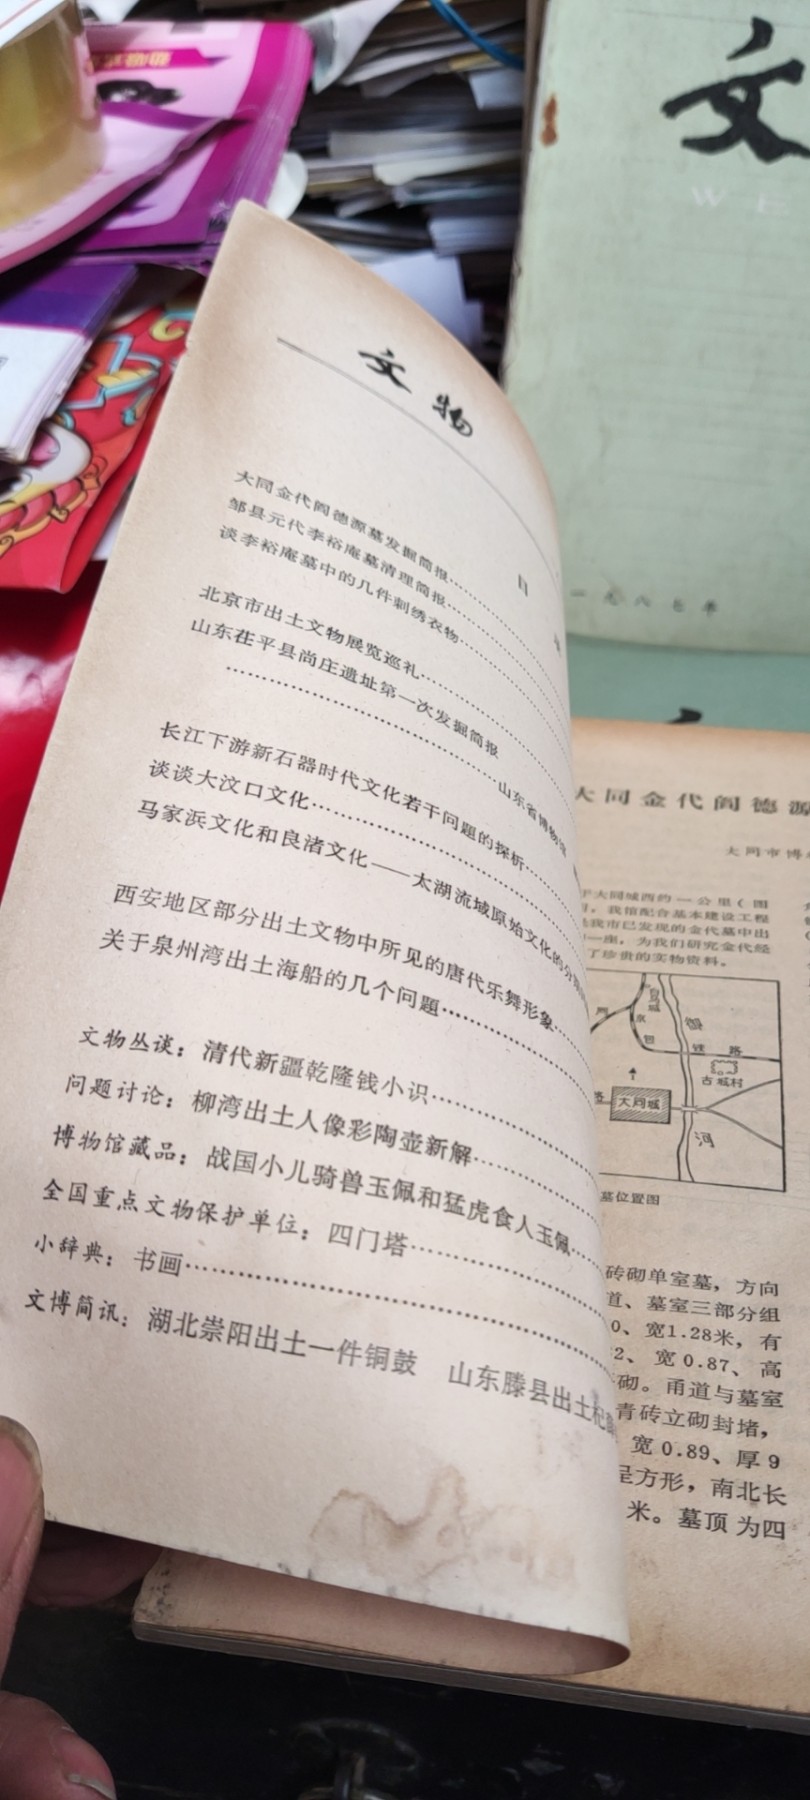 文物
目
大同金代阎德源墓发掘简报……
邹县元代李裕庵墓清理简报……
谈李裕庵墓中的几件刺绣衣物……
北京市出土文物展览巡礼……
山东茌平县尚庄遗址第一次发掘简报
……山东省博物馆
长江下游新石器时代文化若干问题的探析……
谈谈大汶口文化……
马家浜文化和良渚文化——太湖流域原始文化的分
西安地区部分出土文物中所见的唐代乐舞形象……
关于泉州湾出土海船的几个问题……
文物丛谈：清代新疆乾隆钱小识……
问题讨论：柳湾出土人像彩陶壶新解……
博物馆藏品：战国小儿骑兽玉佩和猛虎食人玉佩……
全国重点文物保护单位：四门塔……
小辞典：书画……
文博简讯：湖北崇阳出土一件铜鼓 山东滕县出土杞
文
WE
一九八七年
大同金代阎德源
大同市博
于大同城西约一公里（图
，我馆配合基本建设工程
是我市已发现的金代墓中出
一座，为我们研究金代经
了珍贵的实物资料。
铁路
古城村
大同城
河
墓位置图
砖砌单室墓，方向
道、墓室三部分组
0、宽1.28米，有
2、宽0.87、高
砌。甬道与墓室
青砖立砌封堵，
宽0.89、厚9
呈方形，南北长
米。墓顶为四